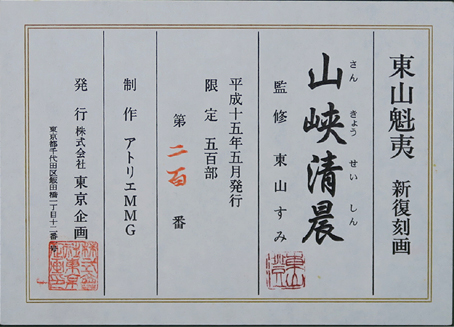 東山魁夷 新復刻画
さんきょうせいしん
山峡清晨
監修 東山すみ
平成十五年五月発行
限定 五百部
第 二百 番
制作 アトリエMMG
発行 株式会社 東京企画
東京都千代田区飯田橋一丁目十二番